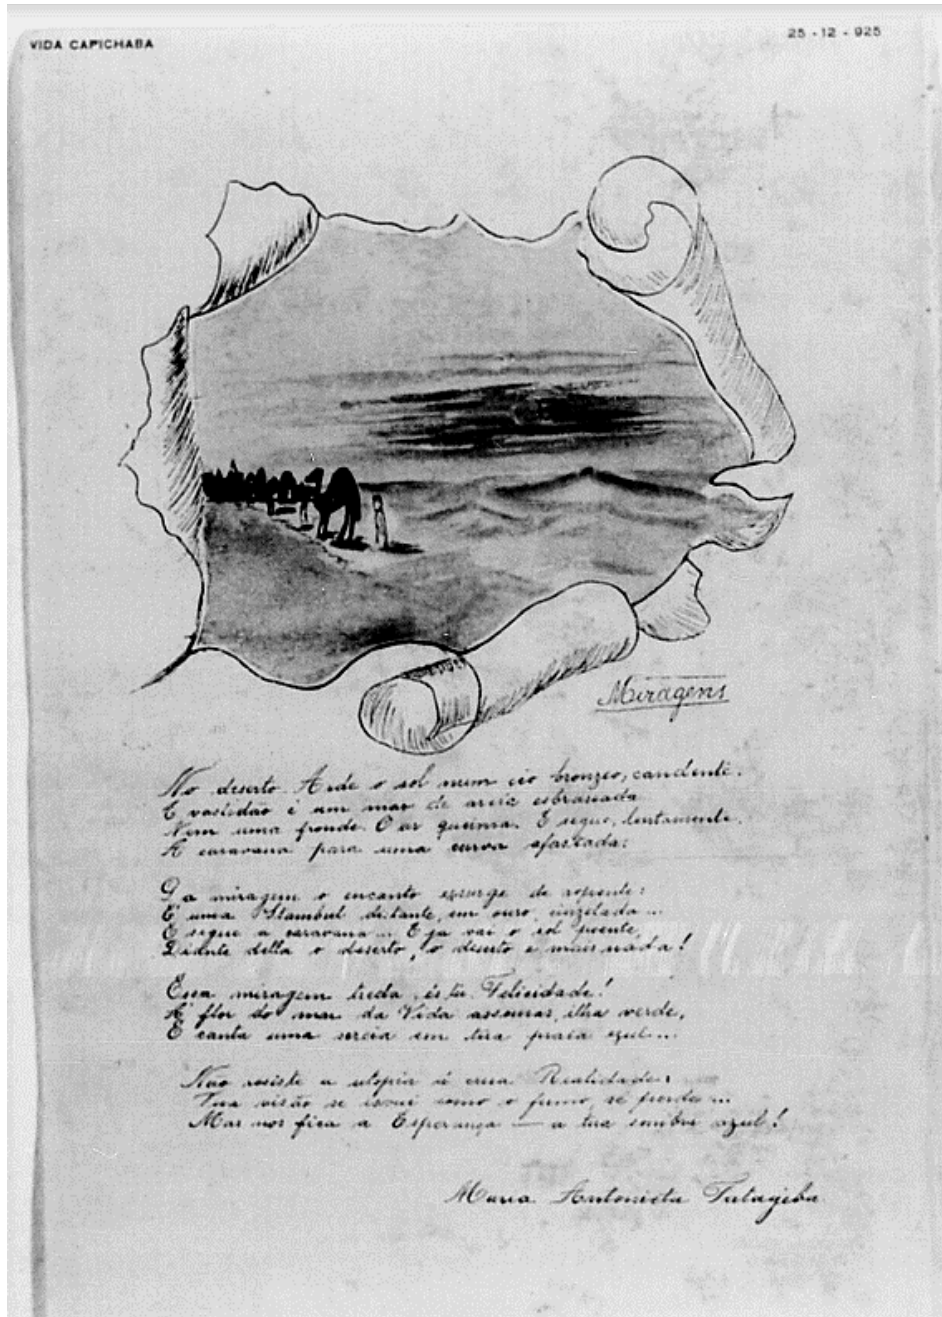 VIDA CAPICHABA
25 - 12 - 925
Miragens
No deserto. Arde o sol num céo bronzeo, candente.
E vastidão é um mar de areia esbraseada
Nem uma fronde. O ar queima. E segue, lentamente,
A caravana para uma curva afastada:
Da miragem o encanto essurge de repente:
É uma Stambul distante, em ouro, cinzelada...
E segue a caravana... E já vai o sol poente,
Diante della o deserto, o deserto e mais nada!
Essa miragem treda, és tu Felicidade!
Á flor do mar da Vida assomas, ilha verde,
E canta uma sereia em tua praia azul...
Não resiste a utopia á crua Realidade:
Tua visão se esvai como o fumo, se perde...
Mas nos fica a Esperança — a tua sombra azul!
Maria Antonieta Tatagiba